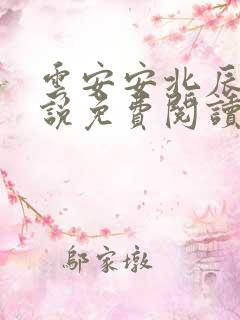 雲安安北辰
說免費閱讀
鄔家墩